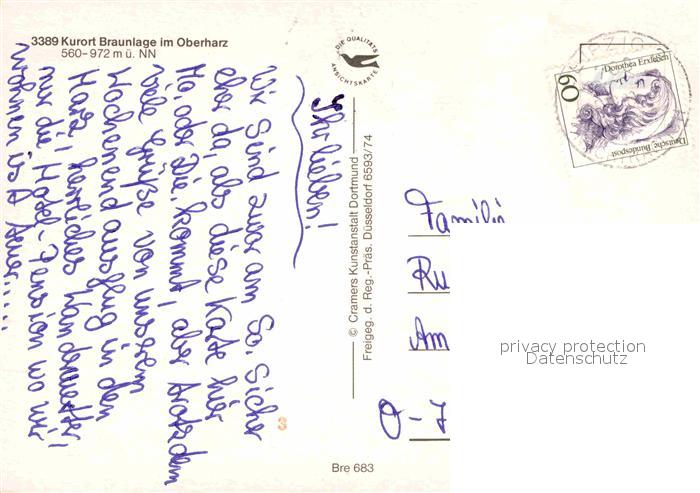 3389 Kurort Braunlage im Oberharz
560–972 m ü. NN
DIE QUALITÄTS
ANSICHTSKARTE
Ihr lieben!
Wir sind zwar am So. sicher
eher da, als diese Karte hier
Mo. oder Die. kommt, aber trotzdem
viele Grüße von unserem
Wochenendausflug in den
Harz! herrliches Wanderwetter!
nur die Hotel-Pension wo wir
wohnen ist
© Cramers Kunstanstalt Dortmund
Freigeg. d. Reg.-Präs. Düsseldorf 6593/74
60
Dorothea Erxleben
Deutsche Bundespost
LEIPZIG
Familie
Ru
Am
O-7
privacy protection
Datenschutz
Bre 683